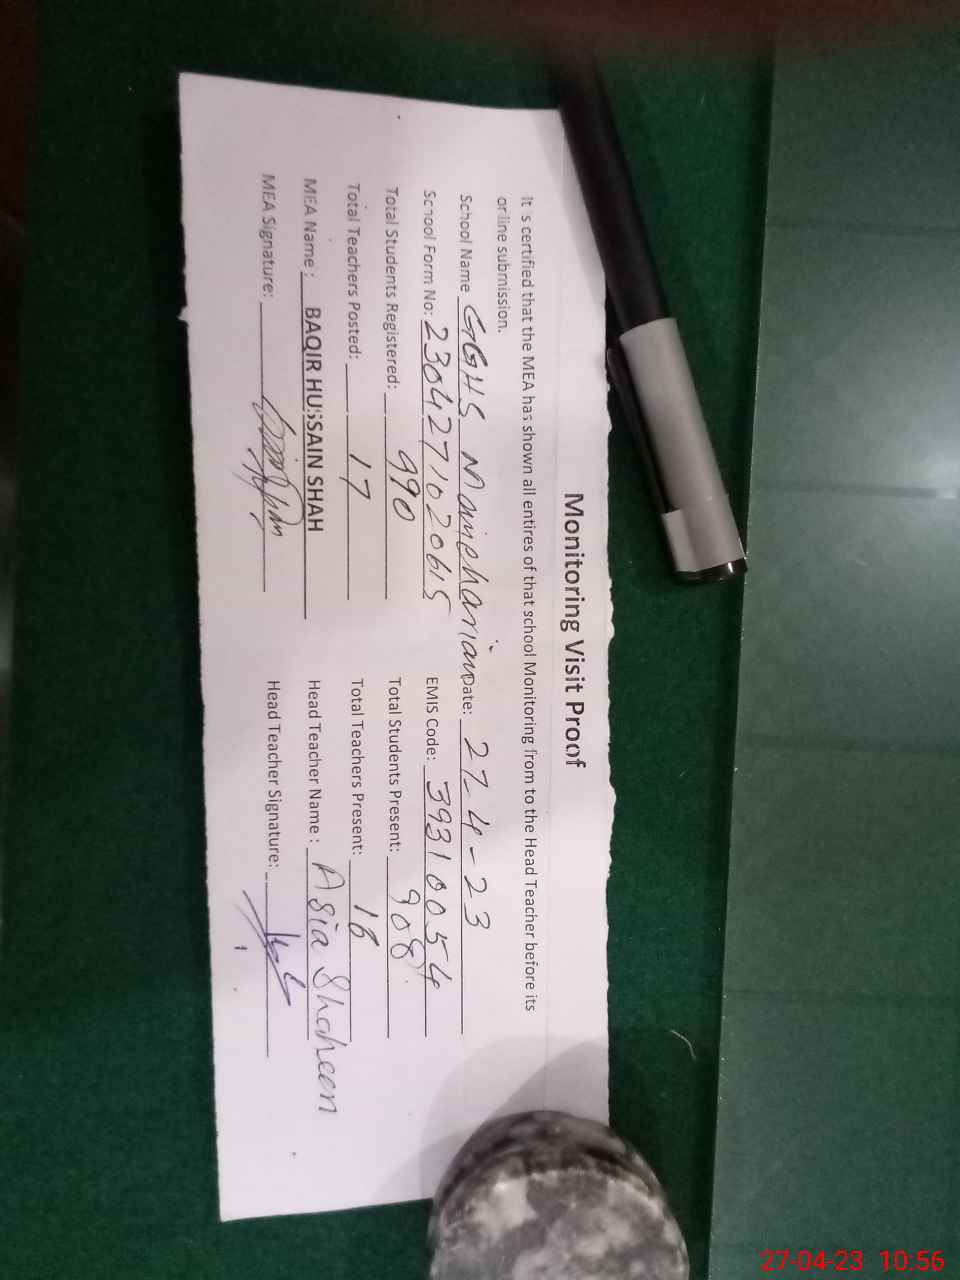 Monitoring Visit Proof
It is certified that the MEA has shown all entires of that school Monitoring from to the Head Teacher before its
on line submission.
School Name GGHS Maricharian Date: 27-4-23
School Form No: 2304271020615 EMIS Code: 39310054
Total Students Registered: 990 Total Students Present: 908
Total Teachers Posted: 17 Total Teachers Present: 16
MEA Name : BAQIR HUSSAIN SHAH Head Teacher Name : Asia Shaheen
MEA Signature: Head Teacher Signature:
27-04-23 10:56